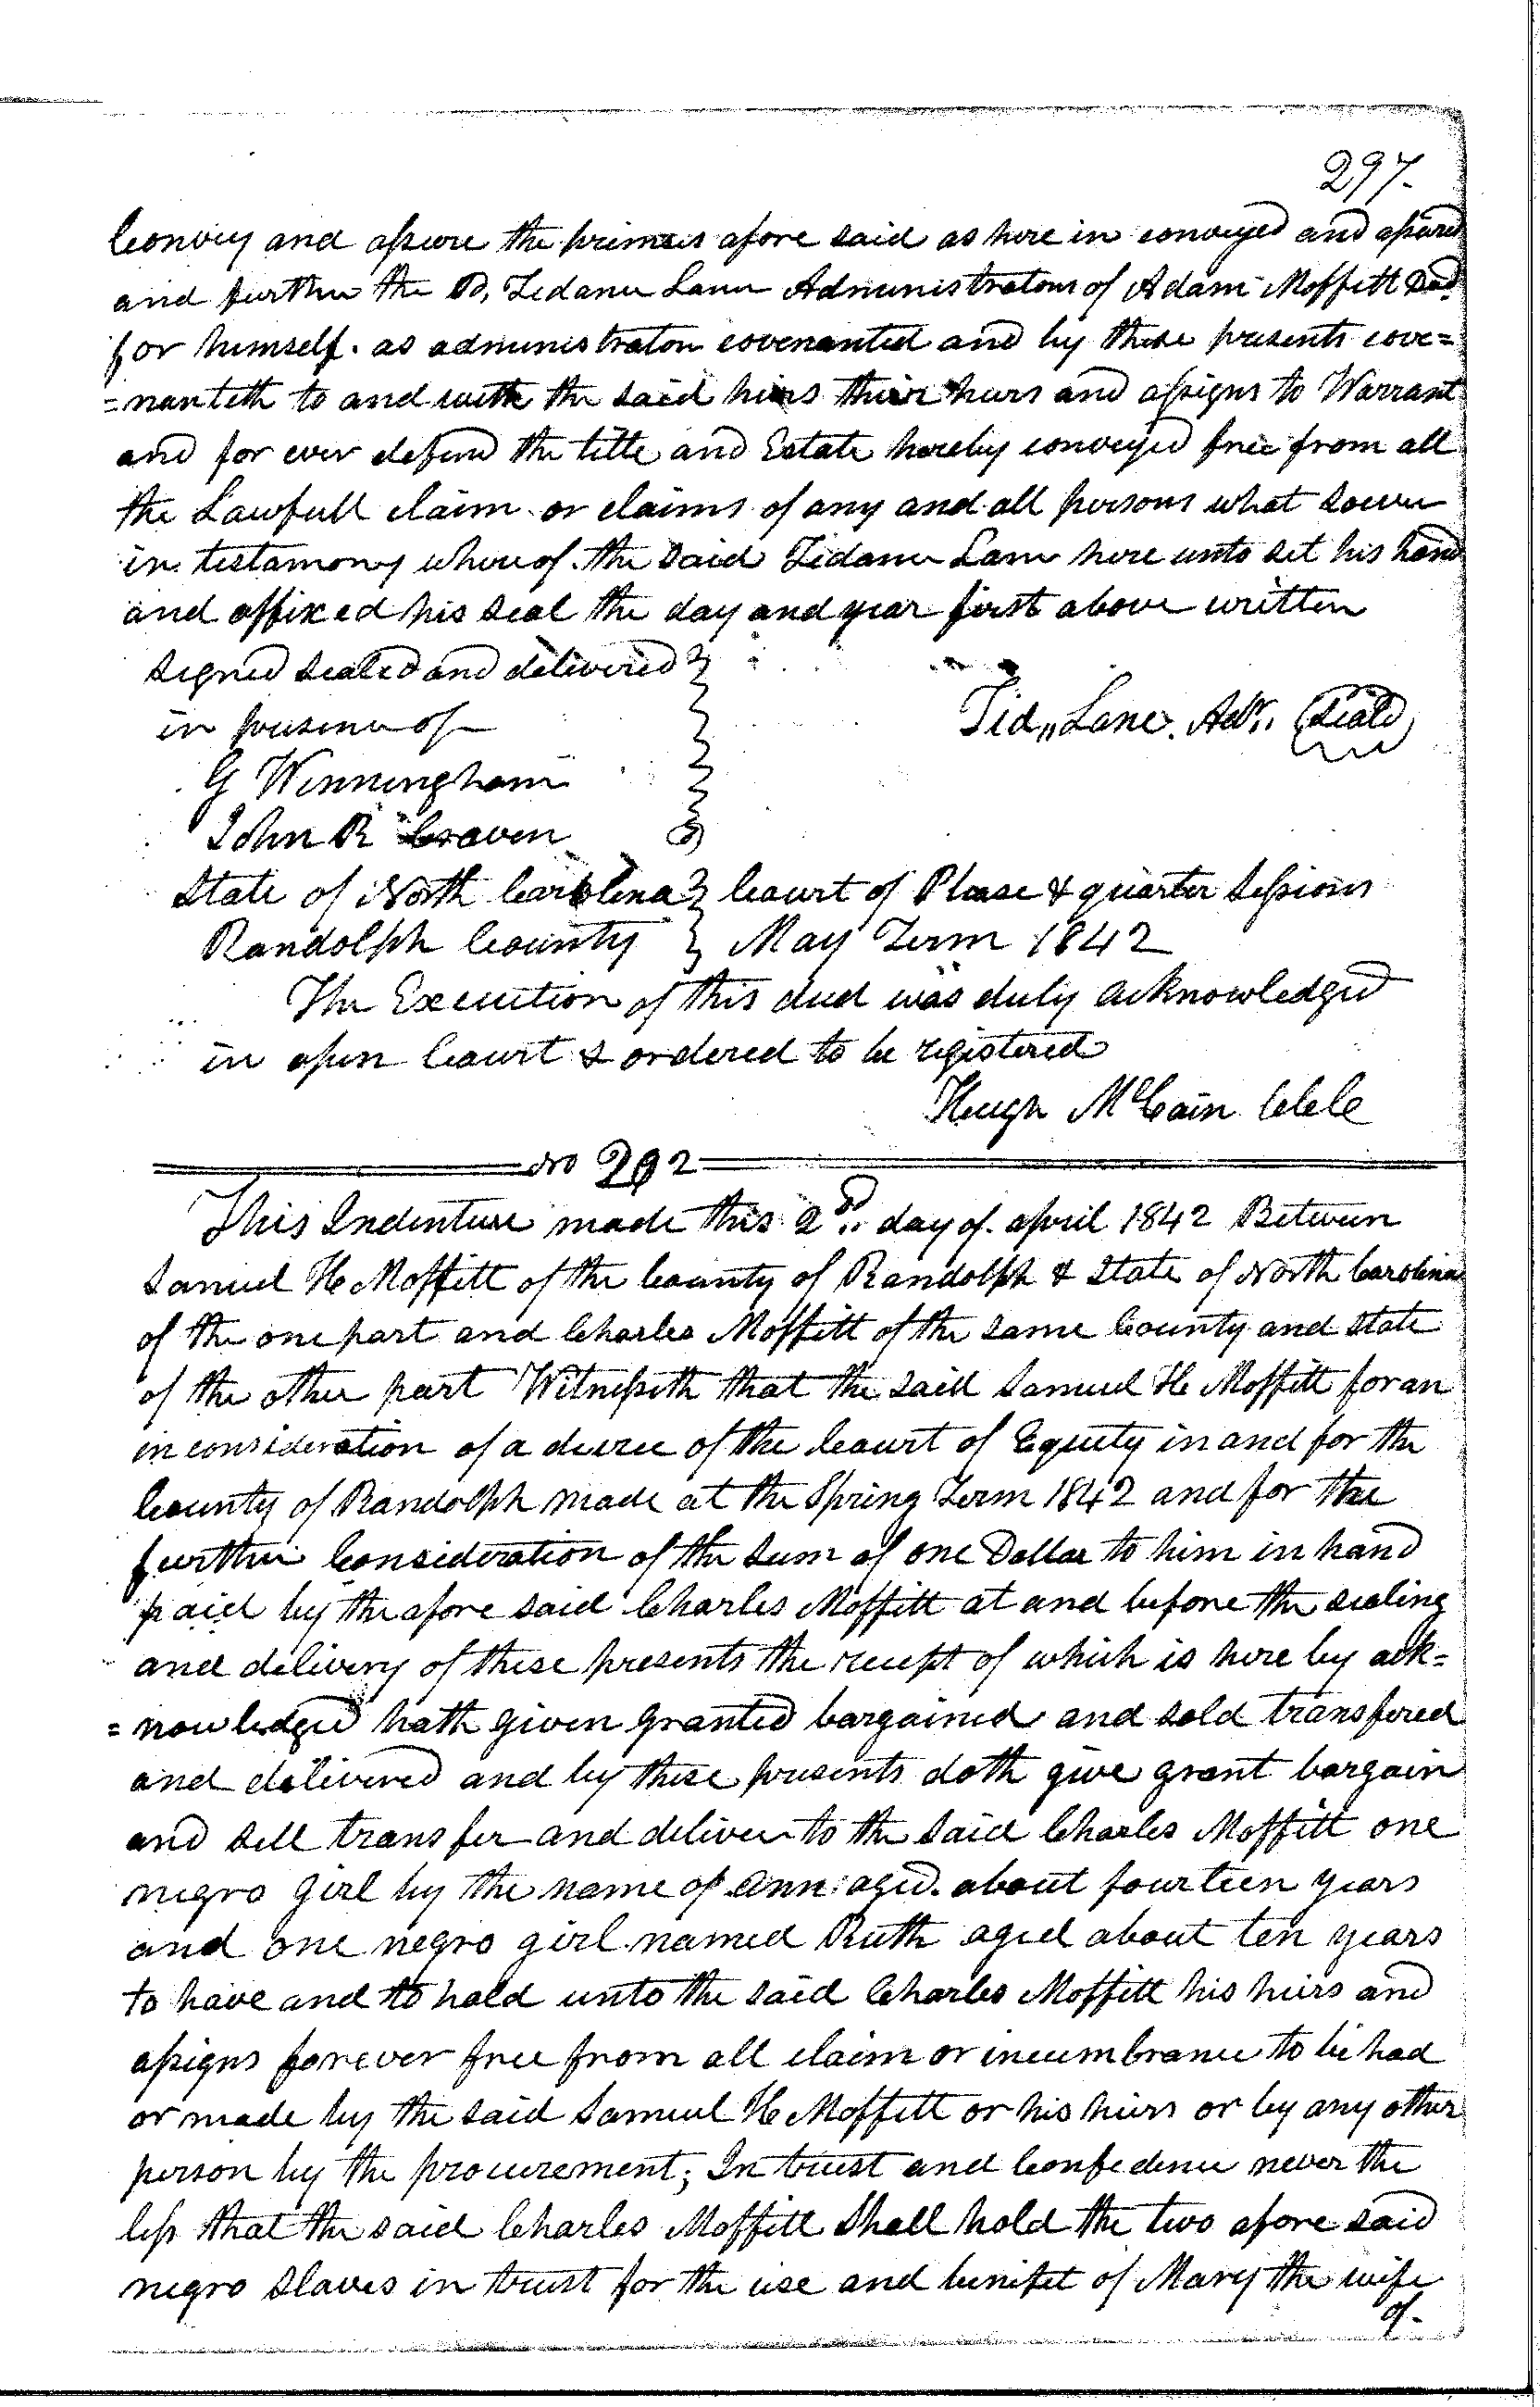 297.
Convey and assure the primses afore said as here in conveyed and assured
and further the sd, Tidance Lane Administrators of Adam Moffitt Decd
for himself. as administrator covenanted and by these presents cove=
=nanteth to and with the said hiers their heirs and assigns to Warrant
and for ever defend the title and Estate hereby conveyed free from all
the Lawfull claim or claims of any and all persons what soever
in testamony where of. the said Tidance Lane here unto set his hand
and affixed his seal the day and year first above written
signed sealed and delivered
in presence of
Tid,, Lane. Adr.. (Seald)
G Winningham
John R Craven
State of North Carolina } Court of Please & quarter Sessions
Randolph County } May Term 1842
The Execution of this deed was duly acknowledged
in open Court & ordered to be registered
Hugh McCain Clk
No 292
This Indenture made this 2nd day of. april 1842 Between
Samuel H Moffitt of the County of Randolph & State of North Carolina
of the one part and Charles Moffitt of the same County and State
of the other part Witnesseth that the said Samuel H Moffitt for an
in consideration of a decree of the Court of Equity in and for the
County of Randolph made at the Spring Term 1842 and for the
further Consideration of the sum of one Dollar to him in hand
paid by the afore said Charles Moffitt at and before the sealing
and delivery of these presents the receipt of which is here by ack=
=nowledged hath given granted bargained and sold transfered
and delivered and by these presents doth give grant bargain
and sell transfer and deliver to the said Charles Moffitt one
negro girl by the name of Ann aged. about fourteen years
and one negro girl named Ruth aged about ten years
to have and to hold unto the said Charles Moffitt his heirs and
assigns forever free from all claim or incumbrance to be had
or made by the said Samuel H Moffitt or his heirs or by any other
person by the procurement; In trust and Confidence never the
less that the said Charles Moffitt Shall hold the two afore said
negro slaves in trust for the use and benifit of Mary the wife
of-